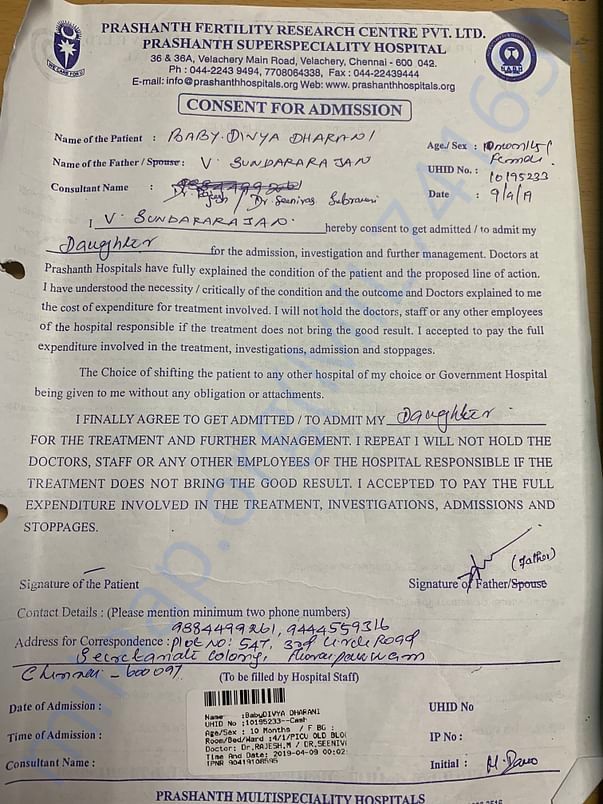 PRASHANTH FERTILITY RESEARCH CENTRE PVT. LTD.
PRASHANTH SUPERSPECIALITY HOSPITAL
36 & 36A, Velachery Main Road, Velachery, Chennai - 600 042.
Ph : 044-2243 9494, 7708064338, Fax : 044-22439444
E-mail: info@prashanthhospitals.org Web: www.prashanthhospitals.org
WE CARE FOR U
CONSENT FOR ADMISSION
Name of the Patient : BABY. DIVYA DHARANI
Age./ Sex : 10month/
Female
Name of the Father / Spouse : V. SUNDARARAJAN
UHID No. : 10195233
Consultant Name : Dr. Rajesh / Dr. Seenivas
Date : 9/4/19
I V. SUNDARARAJAN. hereby consent to get admitted / to admit my
Daughter for the admission, investigation and further management. Doctors at
Prashanth Hospitals have fully explained the condition of the patient and the proposed line of action.
I have understood the necessity / critically of the condition and the outcome and Doctors explained to me
the cost of expenditure for treatment involved. I will not hold the doctors, staff or any other employees
of the hospital responsible if the treatment does not bring the good result. I accepted to pay the full
expenditure involved in the treatment, investigations, admission and stoppages.
The Choice of shifting the patient to any other hospital of my choice or Government Hospital
being given to me without any obligation or attachments.
I FINALLY AGREE TO GET ADMITTED / TO ADMIT MY Daughter
FOR THE TREATMENT AND FURTHER MANAGEMENT. I REPEAT I WILL NOT HOLD THE
DOCTORS, STAFF OR ANY OTHER EMPLOYEES OF THE HOSPITAL RESPONSIBLE IF THE
TREATMENT DOES NOT BRING THE GOOD RESULT. I ACCEPTED TO PAY THE FULL
EXPENDITURE INVOLVED IN THE TREATMENT, INVESTIGATIONS, ADMISSIONS AND
STOPPAGES.
(Father)
Signature of the Patient
Signature of Father/Spouse
Contact Details : (Please mention minimum two phone numbers)
9884499261, 9444559316
Address for Correspondence : Plot No: 547, 3rd Circle Road
Secretariate Colony,
Chennai - 600097.
(To be filled by Hospital Staff)
Date of Admission :
UHID No
Time of Admission :
IP No :
Consultant Name :
Initial :
Name :BabyDIVYA DHARANI
UHID No :10195233--Cash
Age/Sex : 10 Months / F BG :
Room/Bed/Ward :4/1/PICU OLD BLO(
Doctor: Dr.RAJESH.M / DR.SEENIV
Time And Date: 2019-04-09 00:02:
IPNR 90419108595
PRASHANTH MULTISPECIALITY HOSPITALS